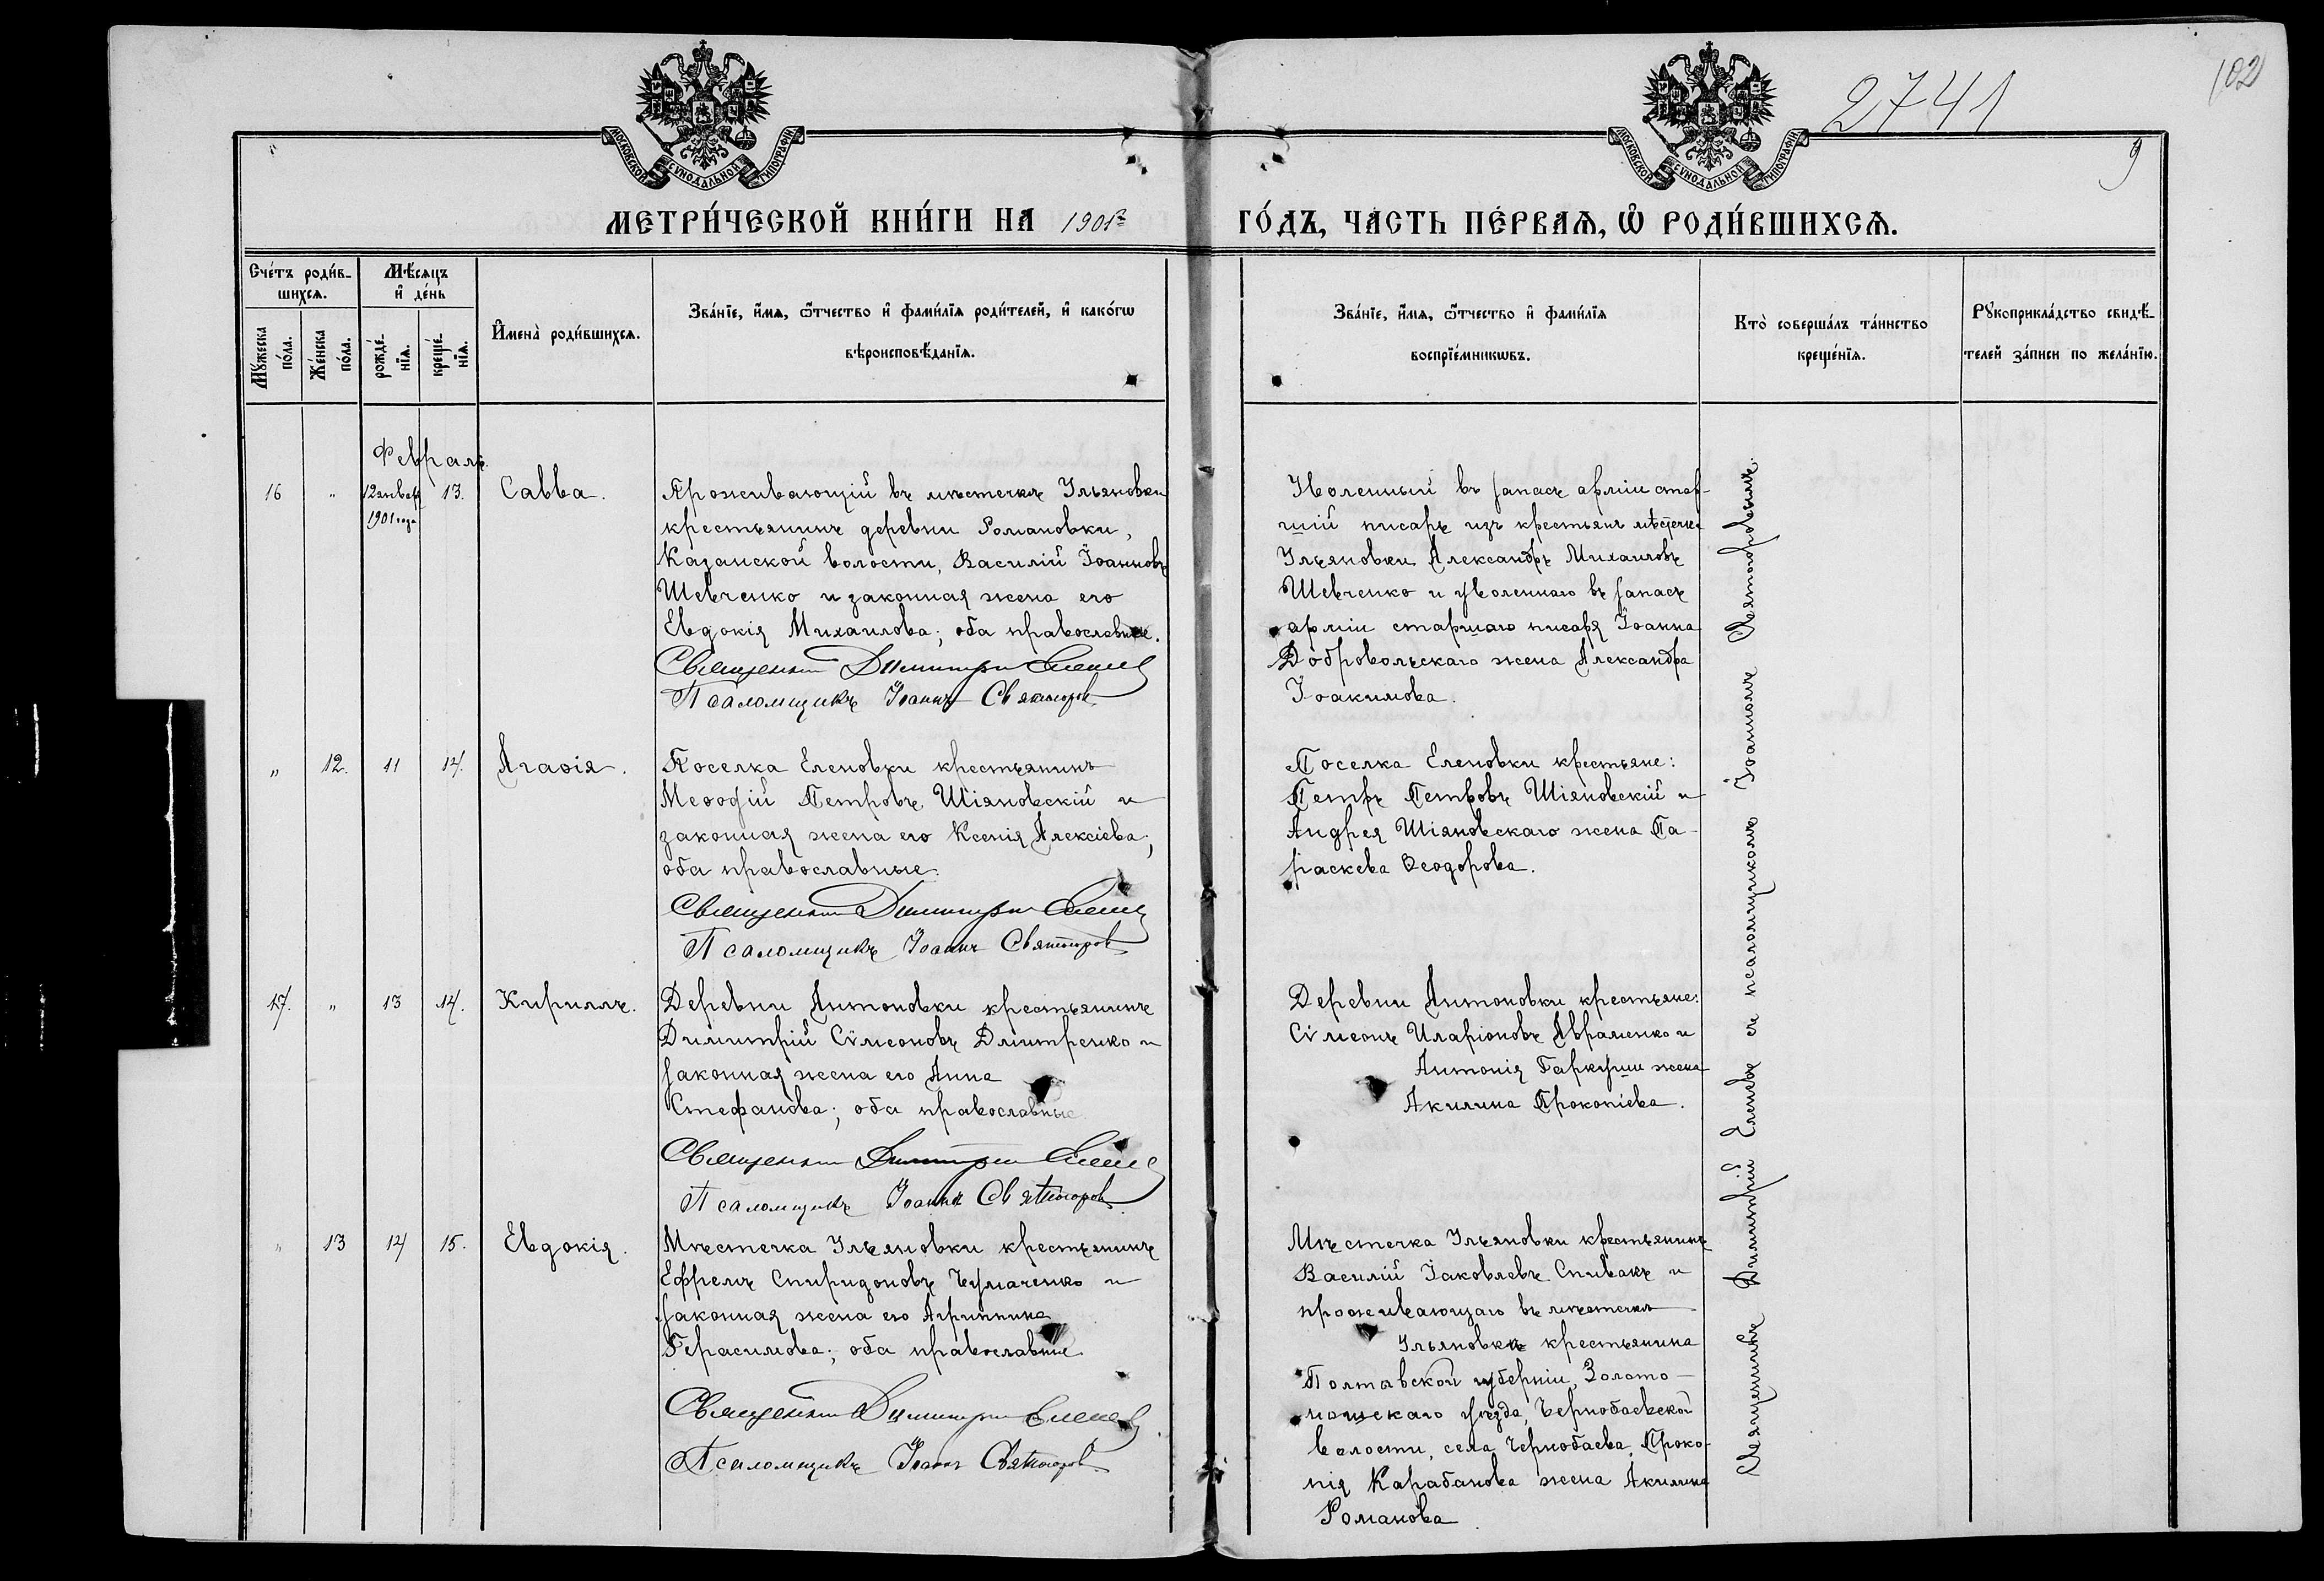 2741
102
9
МОСКОВСКОЙ СѴНОДАЛЬНОЙ ТИПОГРАФІИ
МОСКОВСКОЙ СѴНОДАЛЬНОЙ ТИПОГРАФІИ
МЕТРИ́ЧЕСКОЙ КНИ́ГИ НА 1901й ГО́ДЪ, ЧА́СТЬ ПЕ́РВАѦ, Ѡ҆ РОДИ́ВШИХСѦ.
Сче́тъ роди́в-
шихсѧ.
Мꙋ́жеска
по́ла.
Же́нска
по́ла.
Мѣ́сѧцъ
и҆ де́нь
рожде́-
нїѧ.
креще́-
нїѧ.
И҆мена̀ роди́вшихсѧ.
Зва́нїе, и҆́мѧ, ѻ҆́тчество и҆ фами́лїѧ роди́телей, и҆ како́гѡ
вѣроисповѣ́данїѧ.
Зва́нїе, и҆́мѧ, ѻ҆́тчество и҆ фами́лїѧ
воспрїе́мникѡвъ.
Кто̀ соверша́лъ та́инство
креще́нїѧ.
Рꙋкоприкла́дство свидѣ́-
телей за́писи по жела́нїю.
Февраль.
16 " 12 январ 13. Савва.
1901 года
Проживающій въ мѣстечкѣ Ульяновки
крестьянинъ деревни Романовки,
Казанской волости, Василій Іоанновъ
Шевченко и законная жена его
Евдокія Михаилова; оба православные.
Священникъ Димитрій Еленевъ
Псаломщикъ Іоаннъ Святогоровъ
Уволенный въ запасъ арміи стар-
шій писарь изъ крестьянъ мѣстечка
Ульяновки Александръ Михаиловъ
Шевченко и уволеннаго въ запасъ
арміи старшаго писаря Іоанна
Добровольскаго жена Александра
Іоакимова.
" 12. 11 14. Агаѳія.
Поселка Еленовки крестьянинъ
Меѳодій Петровъ Шіяновскій и
законная жена его Ксенія Алексіева;
оба православные.
Священникъ Димитрій Еленевъ
Псаломщикъ Іоаннъ Святогоровъ
Поселка Еленовки крестьяне:
Петръ Петровъ Шіяновскій и
Андрея Шіяновскаго жена Па-
раскева Ѳеодорова.
17. " 13 14. Кириллъ.
Деревни Антоновки крестьянинъ
Димитрій Сѵмеоновъ Дмитренко и
законная жена его Анна
Стефанова; оба православные
Священникъ Димитрій Еленевъ
Псаломщикъ Іоаннъ Святогоровъ
Деревни Антоновки крестьяне:
Сѵмеонъ Иларіоновъ Авраменко и
Антонія Гаркуши жена
Акилина Прокопіева.
" 13 14 15. Евдокія.
Мѣстечка Ульяновки крестьянинъ
Ефремъ Спиридоновъ Чумаченко и
законная жена его Агриппина
Герасимова; оба православные
Священникъ Димитрій Еленевъ
Псаломщикъ Іоаннъ Святогоровъ
Мѣстечка Ульяновки крестьянинъ
Василій Іаковлевъ Спивакъ и
проживающаго въ мѣстечкѣ
Ульяновкѣ крестьянина
Полтавской губерніи, Золото-
ношскаго уѣзда, Чернобаевской
волости, села Чернобаева, Проко-
пія Карабанова жена Акилина
Романова
Священникъ Димитрій Еленевъ съ псаломщикомъ Іоанномъ Святогоровымъ.